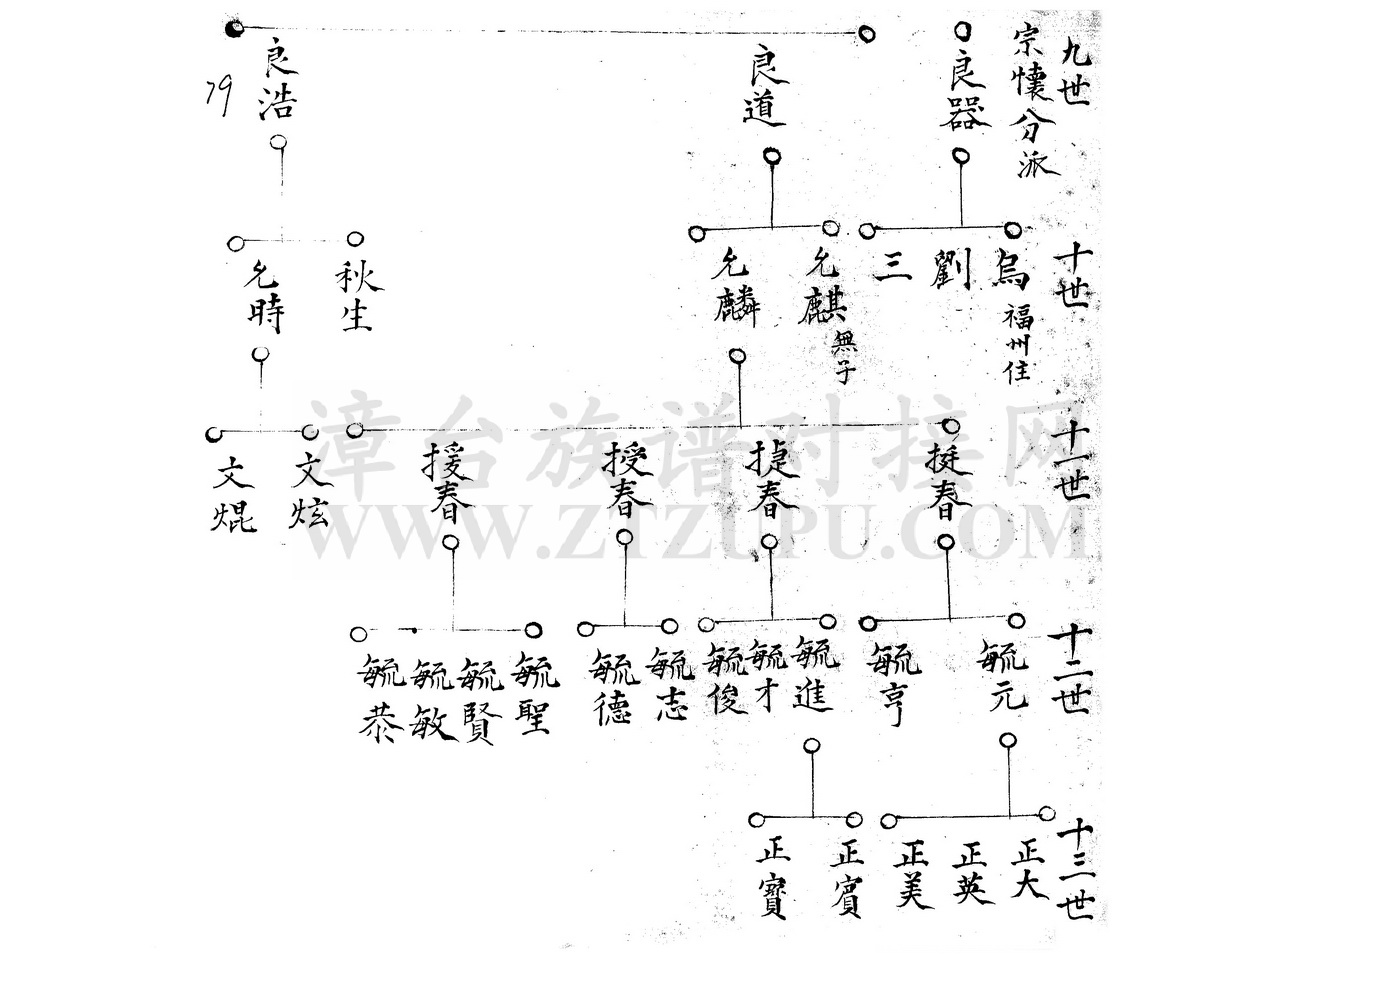 九世
宗懷分派
良器
良道
良浩
79
十世
烏 福州住
劉
三
允麒 無子
允麟
秋生
允時
十一世
挺春
㨗春
授春
援春
文炫
文焜
十二世
毓元
毓亨
毓進
毓才
毓俊
毓志
毓德
毓聖
毓賢
毓敏
毓恭
十三世
正大
正英
正美
正賓
正寶
漳台族谱对接网
WWW.ZTZUPU.COM